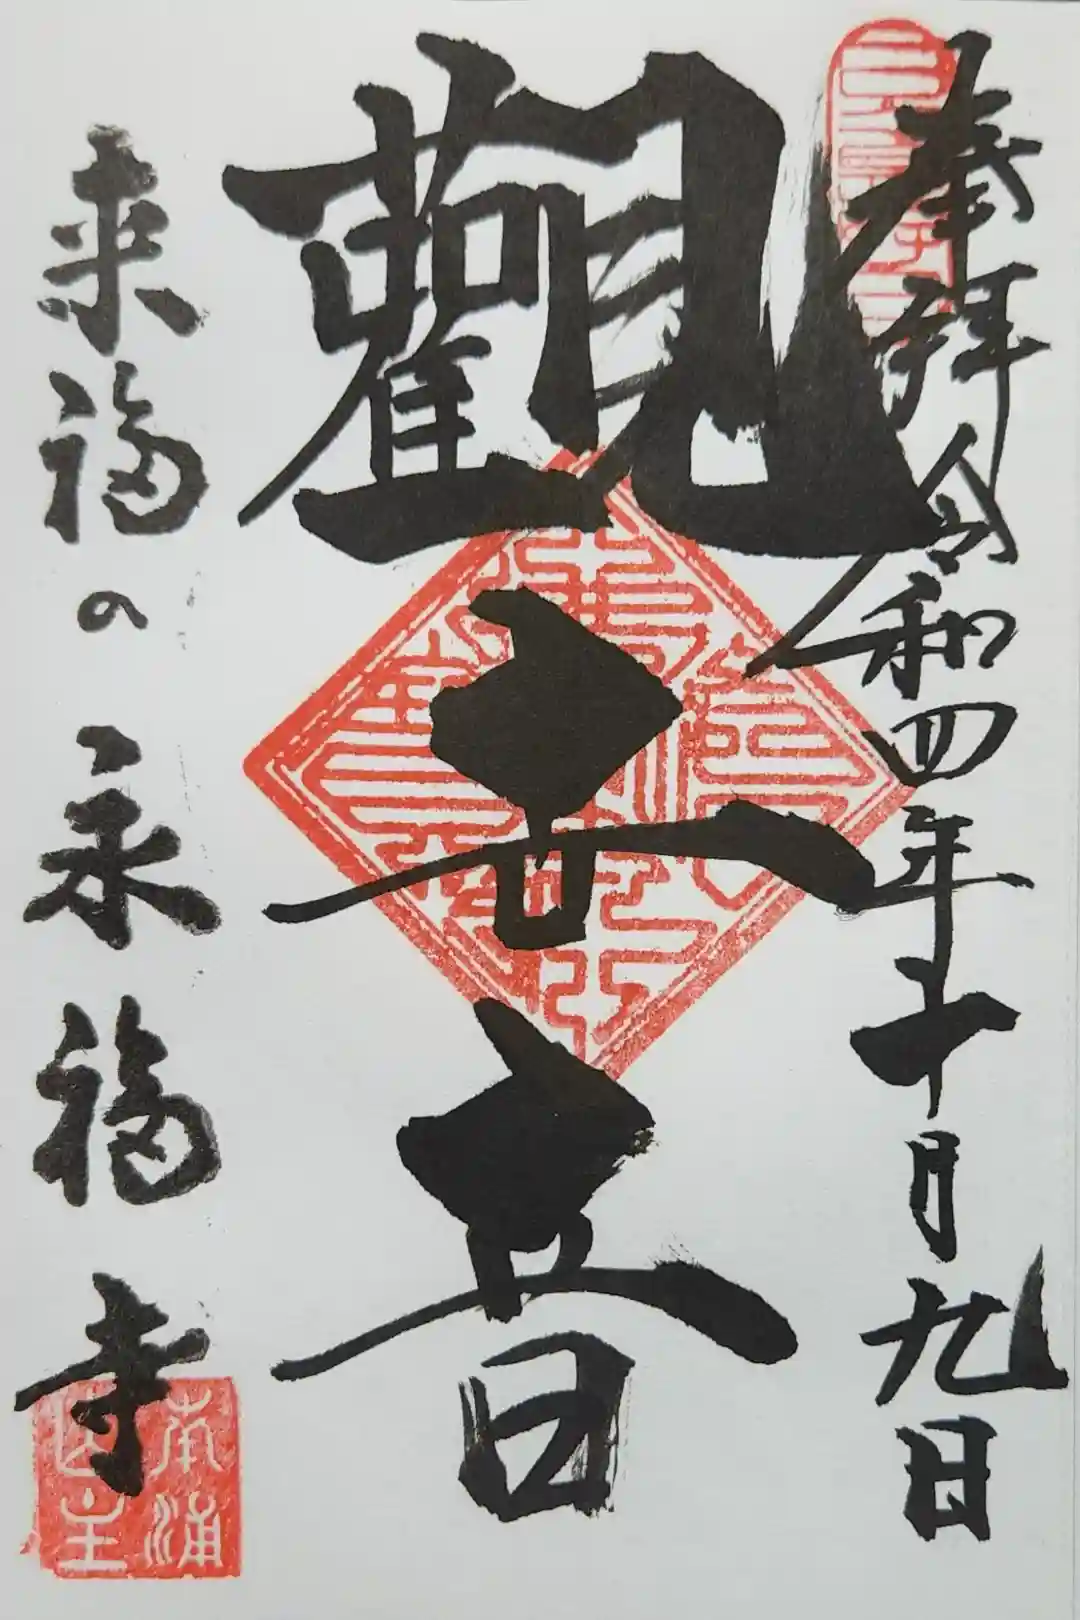 奉拝 令和四年十月九日
觀世音
来福の永福寺